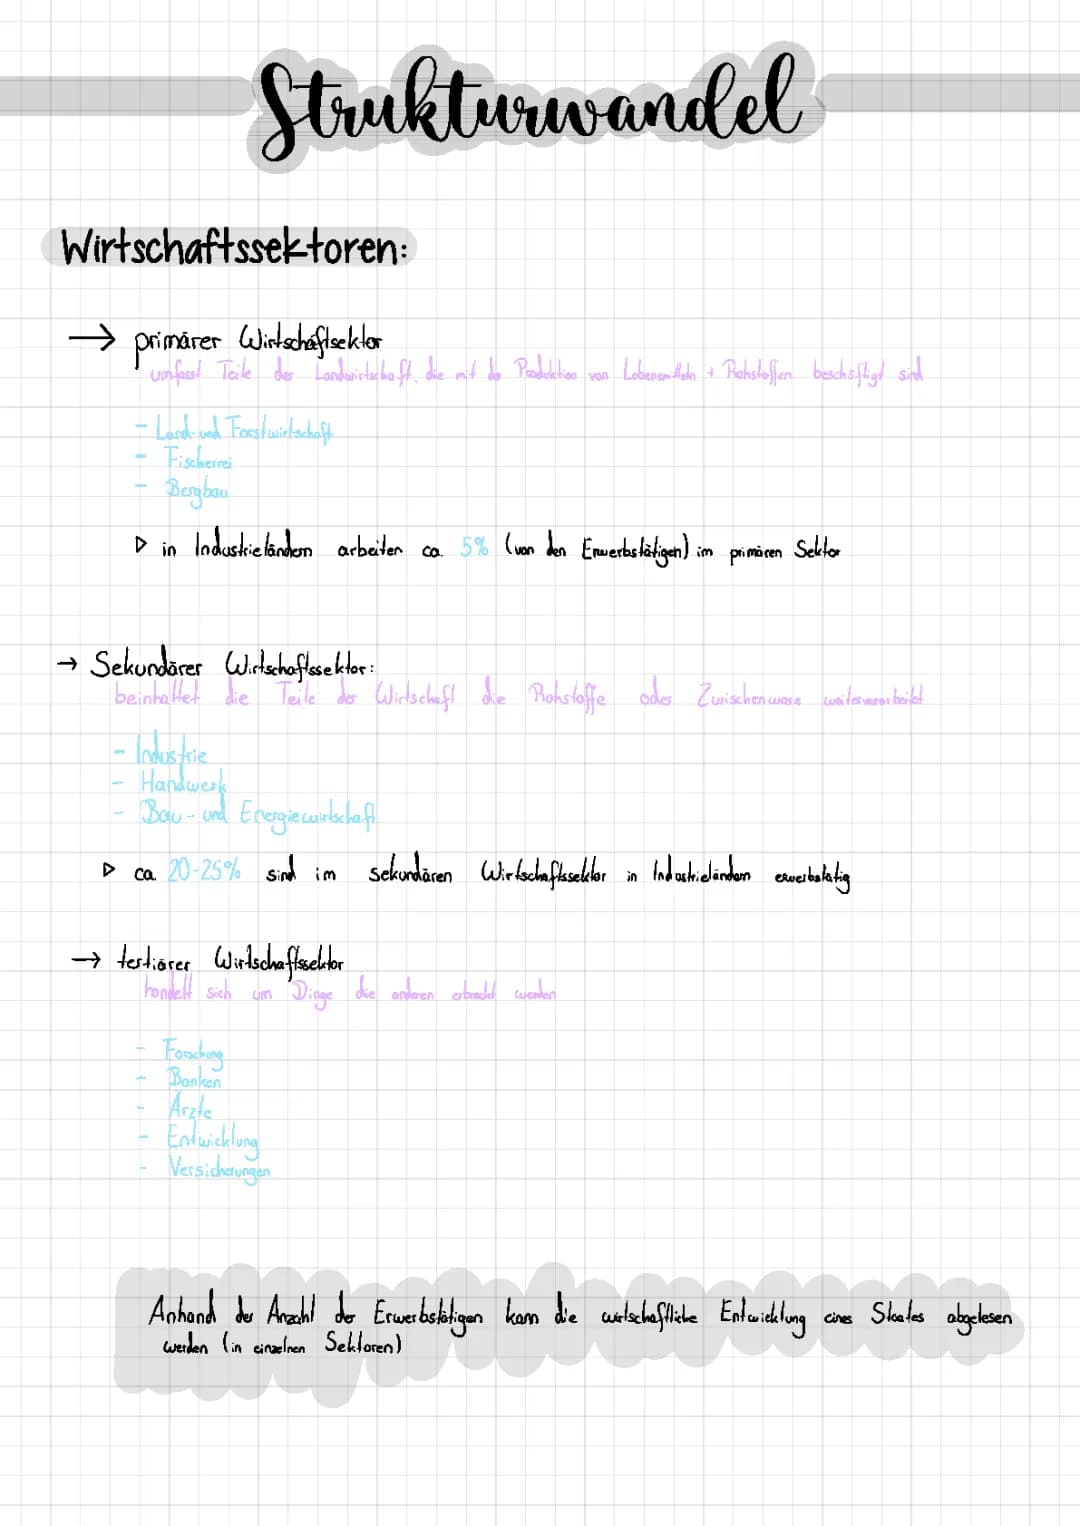 Strukturwandel
Wirtschaftssektoren:
→ primärer Wirtschaftsektor
umfasst Teile der Landwirtschaft, die mit der Produktion von Lebensmitteln + Rohstoffen beschäftigt sind
- Land- und Forstwirtschaft
- Fischerrei
- Bergbau
▷ in Industrieländern arbeiten ca. 5% (von den Erwerbstätigen) im primären Sektor
→ Sekundärer Wirtschaftssektor:
beinhaltet die Teile der Wirtschaft die Rohstoffe oder Zwischenware weiterverarbeitet
- Industrie
- Handwerk
- Bau- und Energiewirtschaft
▷ ca. 20-25% sind im sekundären Wirtschaftssektor in Industrieländern erwerbstätig
→ tertiärer Wirtschaftssektor
handelt sich um Dinge die anderen erbracht werden
- Forschung
- Banken
- Ärzte
- Entwicklung
- Versicherungen
Anhand der Anzahl der Erwerbstätigen kann die wirtschaftliche Entwicklung eines Staates abgelesen
werden (in einzelnen Sektoren)